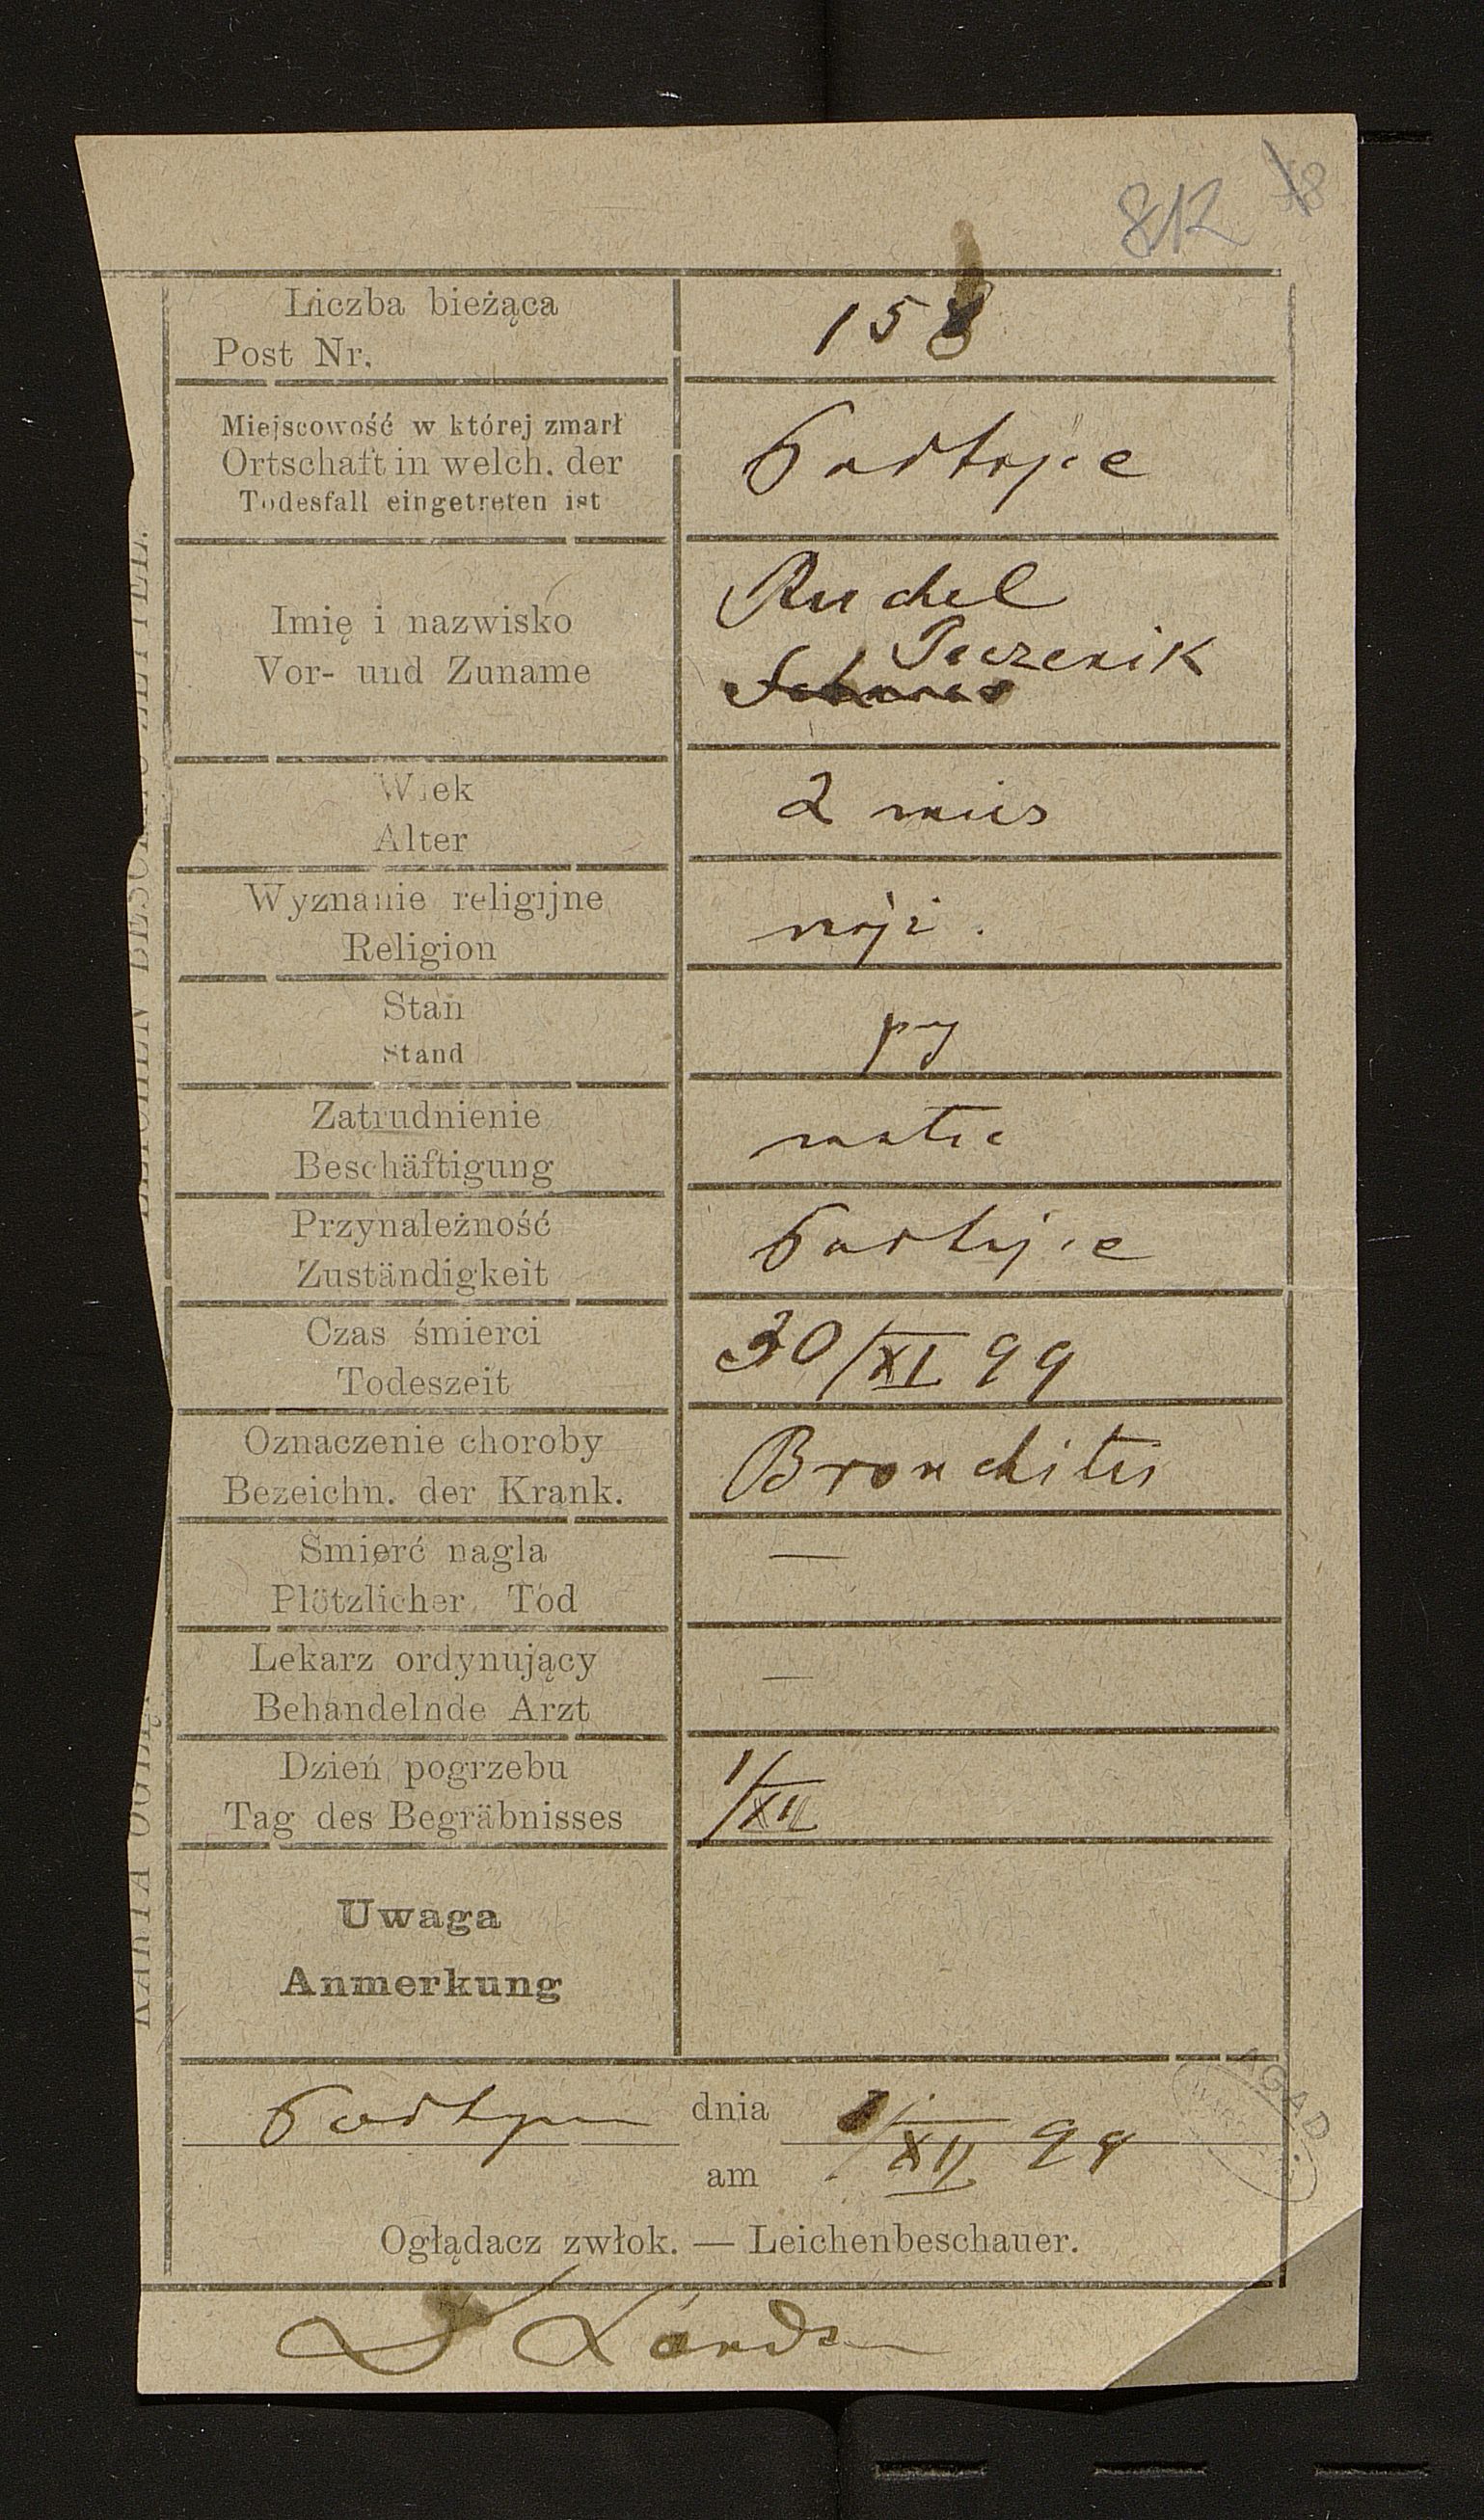 812
Liczba bieżąca
Post Nr.
158
Miejscowość w której zmarł
Ortschaft in welch. der
Todesfall eingetreten ist
Imię i nazwisko
Vor- und Zuname
Ruchel
Peczenik
Wiek
Alter
2 mies
Wyznanie religijne
Religion
mojż.
Stan
Stand
Zatrudnienie
Beschäftigung
Przynależność
Zuständigkeit
Czas śmierci
Todeszeit
30/XI 99
Oznaczenie choroby
Bezeichn. der Krank.
Bronchitis
Śmierć nagła
Plötzlicher Tod
—
Lekarz ordynujący
Behandelnde Arzt
—
Dzień pogrzebu
Tag des Begräbnisses
1/XII
Uwaga
Anmerkung
dnia
am
1/XII 99
Oglądacz zwłok. — Leichenbeschauer.
AGAD